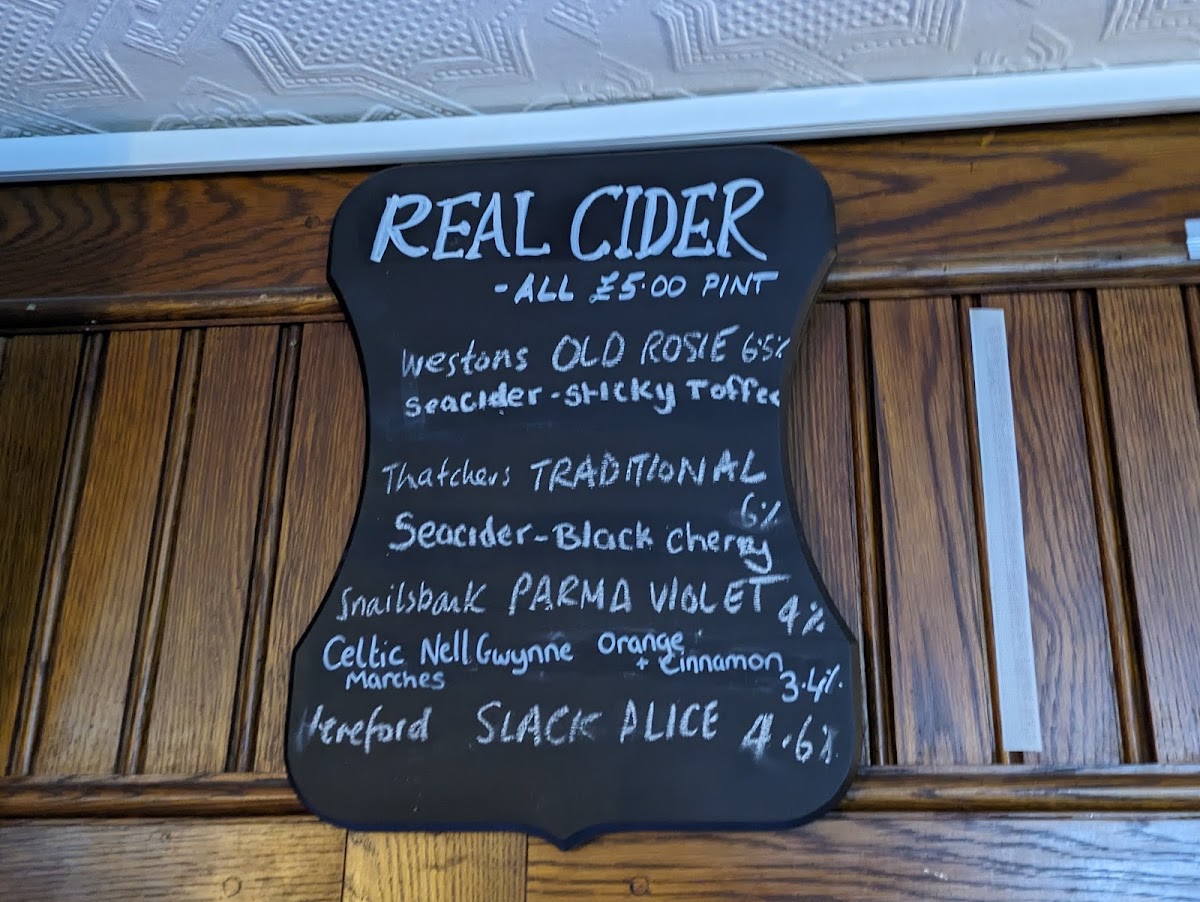 REAL CIDER
- ALL £5.00 PINT
Westons OLD ROSIE 6.5%
Seacider - Sticky Toffee
Thatchers TRADITIONAL
6%
Seacider - Black cherry
Snailsbank PARMA VIOLET 4%
Celtic Nell Gwynne Orange
Marches + Cinnamon 3.4%
Hereford SLACK ALICE 4.6%